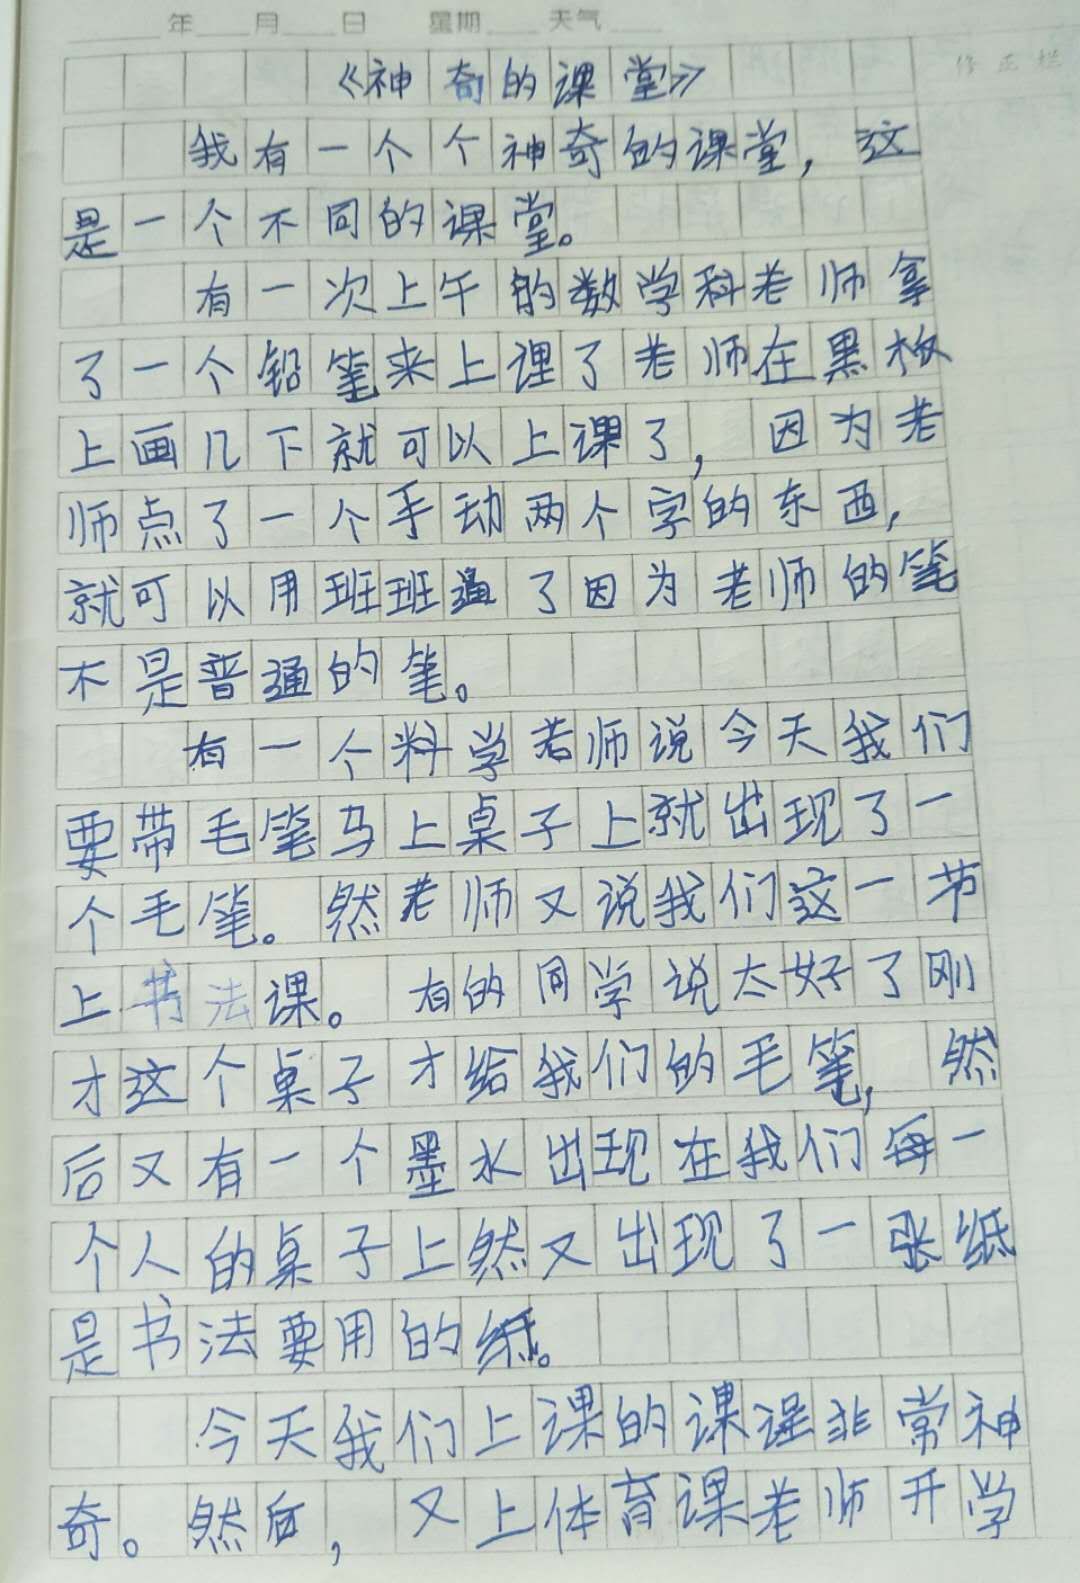 年 月 日 星期 天气
修正栏
《神奇的课堂》
我有一个个神奇的课堂，这
是一个不同的课堂。
有一次上午的数学科老师拿
了一个铅笔来上课了老师在黑板
上画几下就可以上课了，因为老
师点了一个手动两个字的东西，
就可以用班班通了因为老师的笔
不是普通的笔。
有一个科学老师说今天我们
要带毛笔马上桌子上就出现了一
个毛笔。然老师又说我们这一节
上书法课。有的同学说太好了刚
才这个桌子才给我们的毛笔，然
后又有一个墨水出现在我们每一
个人的桌子上然又出现了一张纸
是书法要用的纸。
今天我们上课的课程非常神
奇。然后，又上体育课老师开学